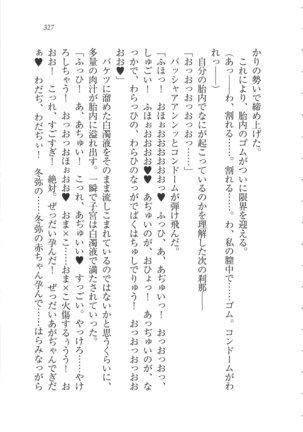 327
かりの勢いで締め上げた。
これにより、胎内のゴムがついに限界を迎える。
(あっ――わ、割れる……。割れる……。わ、私の膣中で……ゴム。コンドームがわ
れっ――)
「おっおっおっおっおっ……」
自分の胎内でなにが起こっているのかを理解した次の刹那――
バッシャアアアンッとコンドームが弾け飛んだ。
「ふほっ！ おほぉおおおおおお♥ ふっひ、あ、あぢゅいっ！ おっおっおっお
しゅごい！ ふほぉおおおおお♥♥ あぢゅいのが、おひょっ！ あっぢゅいのが、な
っかで、わらっひの、わらひのなっがでばくはちゅしでりゅう！ おっおっおっおお
おっお♥」
バケツに溜めた白濁液をそのまま流しこまれているのではないかと思うくらいに、
多量の肉汁が胎内に溢れ出す。一瞬で子宮は白濁液で満たされていった。
「ふっひ！ あ、あちゅい！ これ、あちゅいいい♥ すっごい。やっけろ……やけ
ろしちゃう！ おっおっおほぉおお♥ おま×こ……おま×こ火傷するぅうう！ お
おお！ これっ、すごすぎ！ 絶対。ぜっだい孕んだ！ ぜっだいあがちゃんでぎだ
ぁ♥ わだぢ、わだぢぃ！ 冬弥の……冬弥の赤ちゃん孕んで……はらみなっがら